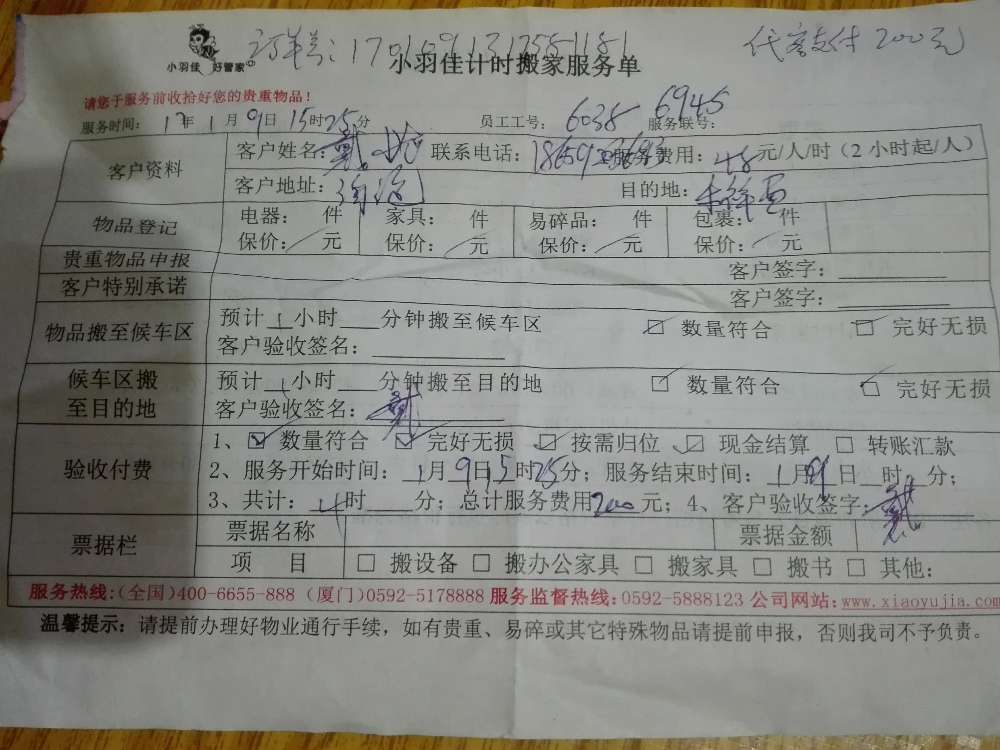 代客支付200元
小羽佳 好管家®
小羽佳计时搬家服务单
请您于服务前收拾好您的贵重物品！
服务时间： 17年 1月 9日 15时25分 员工工号： 6038 6945 服务联号：
客户资料 客户姓名：戴 联系电话： 服务费用：48元/人/时（2小时起/人）
客户地址： 目的地：
物品登记 电器： 件 家具： 件 易碎品： 件 包裹： 件
保价： 元 保价： 元 保价： 元 保价： 元
贵重物品申报 客户签字：
客户特别承诺 客户签字：
物品搬至候车区 预计1小时 分钟搬至候车区 ☑ 数量符合 ☑ 完好无损
客户验收签名：
候车区搬至目的地 预计1小时 分钟搬至目的地 ☑ 数量符合 ☑ 完好无损
客户验收签名：戴
验收付费 1、☑ 数量符合 ☑ 完好无损 ☑ 按需归位 ☑ 现金结算 □ 转账汇款
2、服务开始时间：1月9日15时25分；服务结束时间：1月9日 时 分；
3、共计：4时 分；总计服务费用200元；4、客户验收签字：戴
票据栏 票据名称 票据金额
项 目 □ 搬设备 □ 搬办公家具 □ 搬家具 □ 搬书 □ 其他：
服务热线：(全国)400-6655-888 (厦门)0592-5178888 服务监督热线：0592-5888123 公司网站：www.xiaoyujia.com
温馨提示：请提前办理好物业通行手续，如有贵重、易碎或其它特殊物品请提前申报，否则我司不予负责。